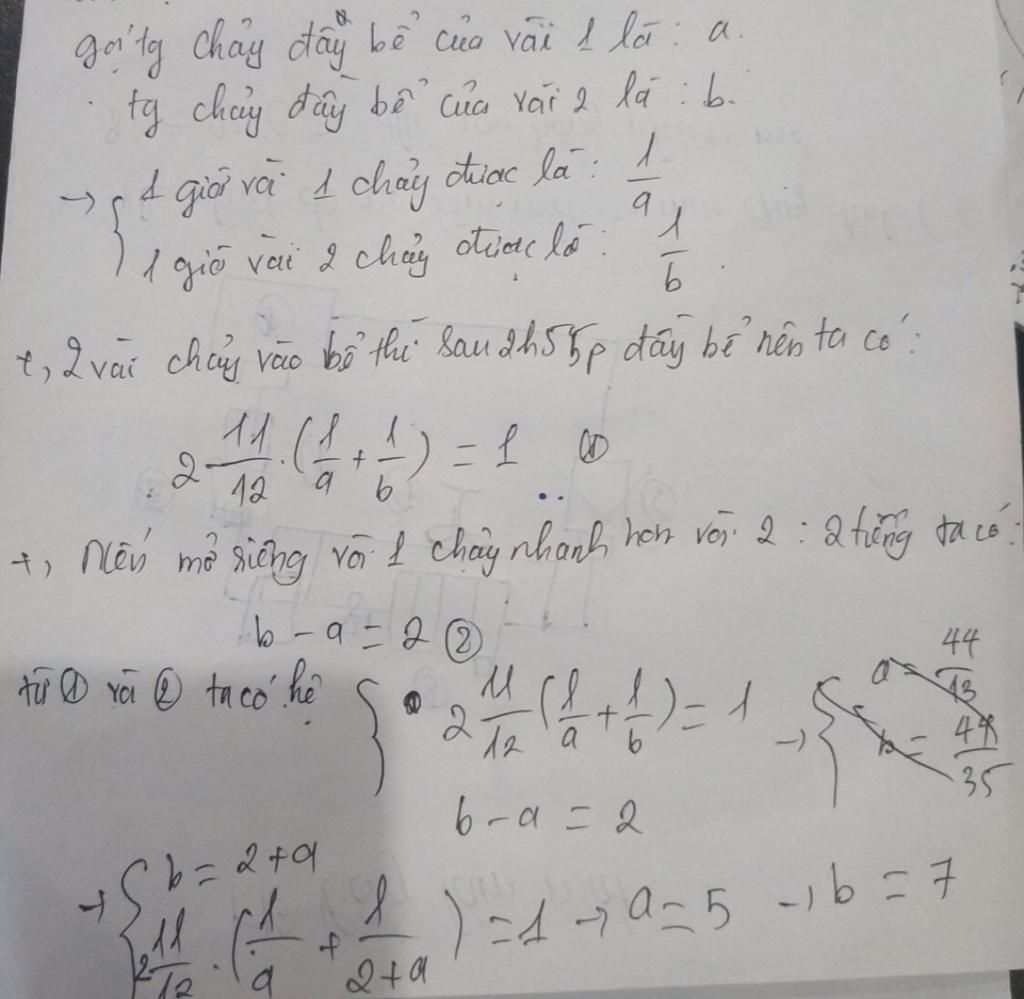 gọi tg chảy đầy bể của vòi 1 là: a.
tg chảy đầy bể của vòi 2 là: b.
→ { 1 giờ vòi 1 chảy được là: 1/a
1 giờ vòi 2 chảy được là: 1/b.
+, 2 vòi chảy vào bể thì sau 2h55p đầy bể nên ta có:
2 11/12 . (1/a + 1/b) = 1 ①
+, Nếu mở riêng vòi 1 chảy nhanh hơn vòi 2 : 2 tiếng ta có:
b - a = 2 ②
từ ① và ② ta có hệ { 2 11/12 (1/a + 1/b) = 1 → { a = 44/13
b = 44/35
b - a = 2
→ { b = 2 + a
2 11/12 . (1/a + 1/2+a) = 1 → a = 5 → b = 7